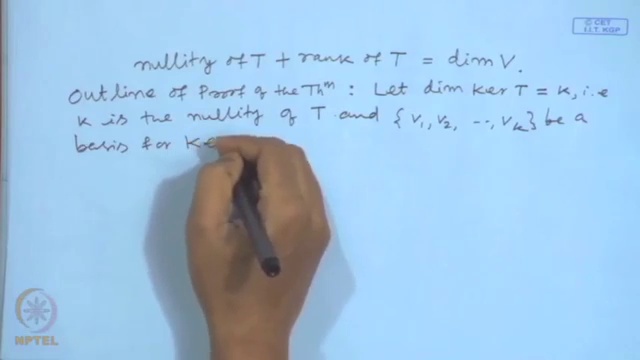 © CET
I.I.T. KGP
nullity of T + rank of T = dim V.
Outline of Proof of the Thm : Let dim Ker T = k, i.e
k is the nullity of T and {v1, v2, ..., vk} be a
basis for Ke
NPTEL